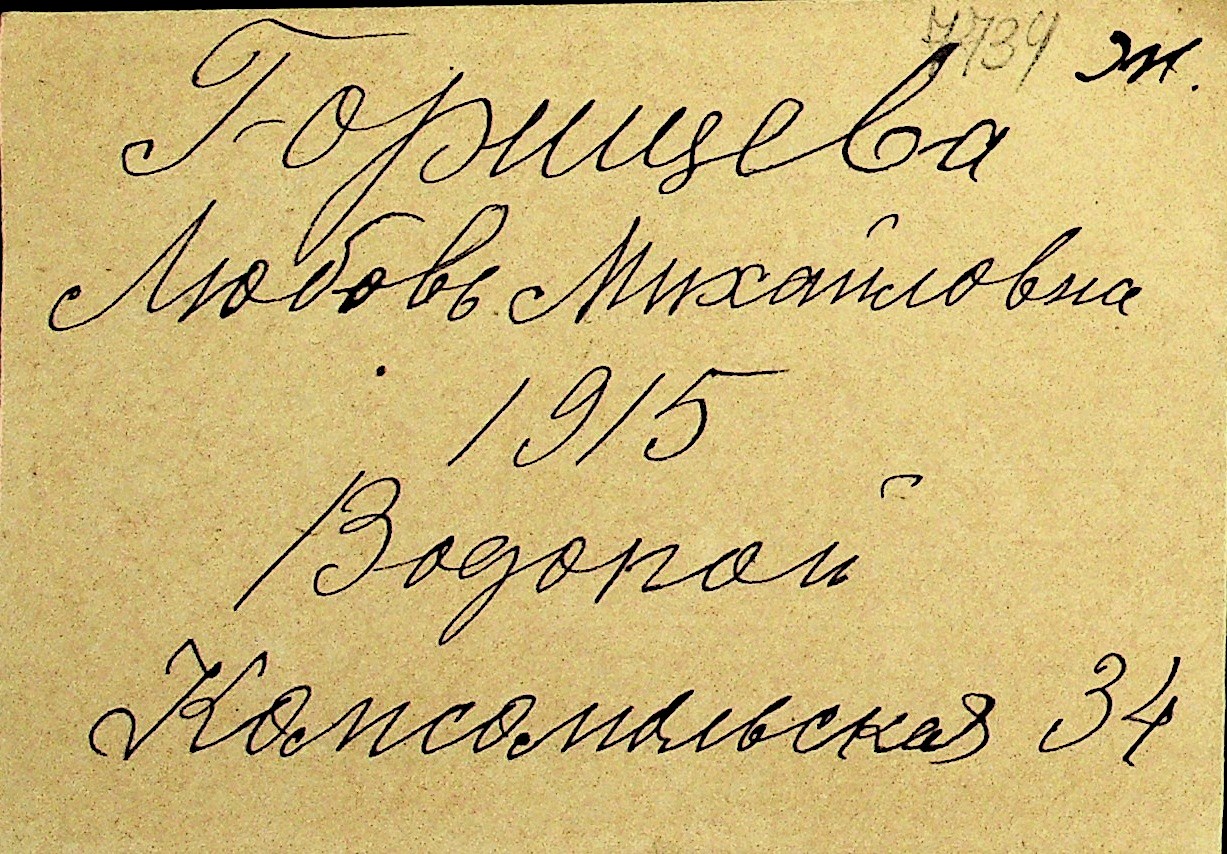 7734 ж.
Горищева
Любовь Михайловна
1915
Водопой
Комсомольская 34